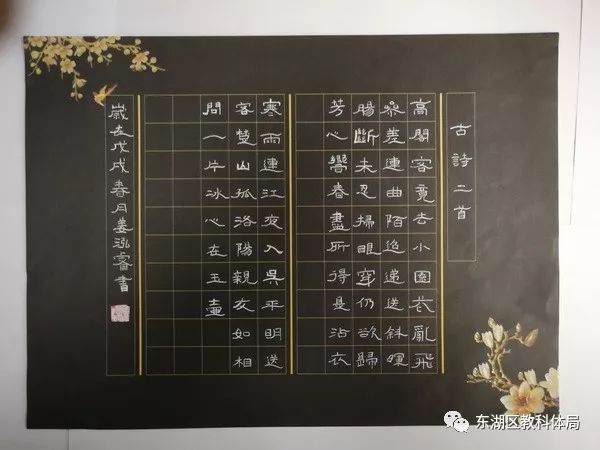 古詩二首
高閣客竟去小園花亂飛
參差連曲陌迢遞送斜暉
腸斷未忍掃眼穿仍欲歸
芳心嚮春盡所得是沾衣
寒雨連江夜入吳平明送
客楚山孤洛陽親友如相
問一片冰心在玉壺
歲在戊戌春月姜泓睿書
东湖区教科体局